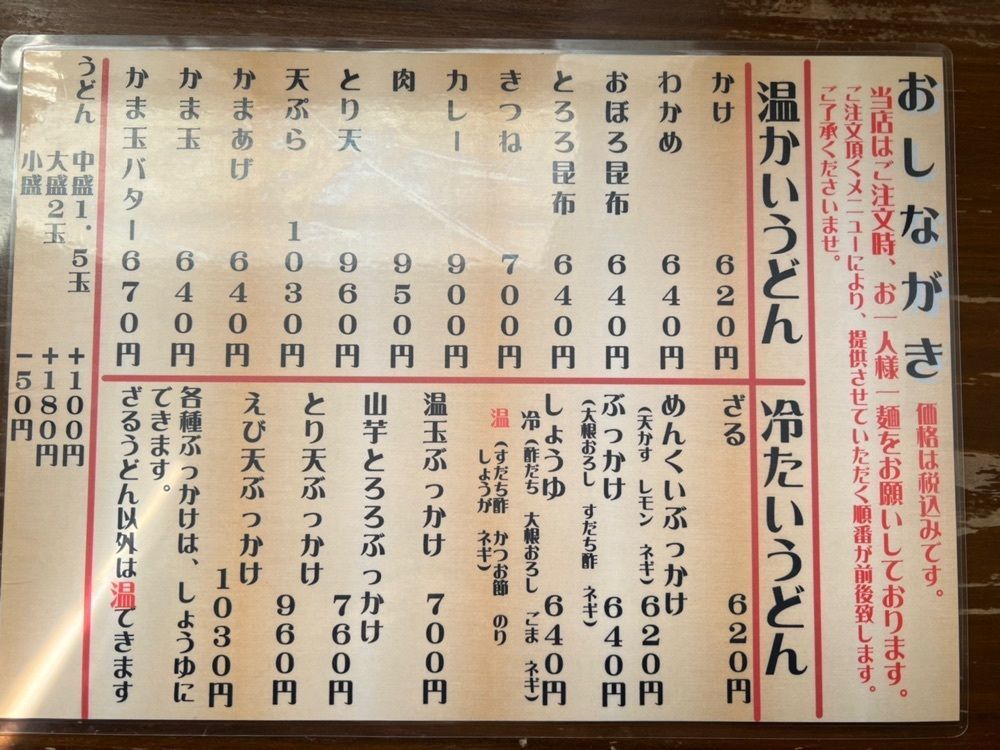 おしながき 価格は税込みです。
当店はご注文時、お一人様一麺をお願いしております。
ご注文頂くメニューにより、提供させていただく順番が前後致します。
ご了承くださいませ。
温かいうどん
かけ 620円
わかめ 640円
おぼろ昆布 640円
とろろ昆布 640円
きつね 700円
カレー 900円
肉 950円
とり天 960円
天ぷら 1030円
かまあげ 640円
かま玉 640円
かま玉バター 670円
冷たいうどん
ざる 620円
めんくいぶっかけ 620円
(天かす レモン ネギ)
ぶっかけ 640円
(大根おろし すだち酢 ネギ)
しょうゆ 640円
冷(酢だち 大根おろし ごま ネギ)
温(すだち酢 かつお節 のり
しょうが ネギ)
温玉ぶっかけ 700円
山芋とろろぶっかけ 760円
とり天ぶっかけ 960円
えび天ぶっかけ 1030円
各種ぶっかけは、しょうゆに
できます。
ざるうどん以外は温できます
うどん 中盛1.5玉 +100円
大盛2玉 +180円
小盛 -50円